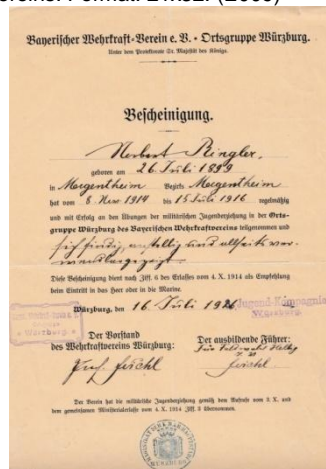 Bayerischer Wehrkraft-Verein e. V. - Ortsgruppe Würzburg.
Unter dem Protektorate Sr. Majestät des Königs.
Bescheinigung.
Norbert Ringler,
geboren am 26. Juli 1899
in Mergentheim Bezirks Mergentheim
hat vom 8. Nov. 1914 bis 15. Juli 1916 regelmäßig
und mit Erfolg an den Übungen der militärischen Jugenderziehung in der Orts-
gruppe Würzburg des Bayerischen Wehrkraftvereins teilgenommen und
sich findig, anstellig und allseits ver-
wendbar gezeigt.
Diese Bescheinigung dient nach Ziff. 6 des Erlasses vom 4. X. 1914 als Empfehlung
beim Eintritt in das Heer oder in die Marine.
Würzburg, den 16. Juli 1916.
Jugend-Kompagnie
Würzburg.
Der Vorstand
des Wehrkraftvereins Würzburg:
Der ausbildende Führer:
Der Verein hat die militärische Jugenderziehung gemäß dem Aufrufe vom 3. X. und
dem gemeinsamen Ministerialerlasse vom 4. X. 1914 Ziff. 3 übernommen.